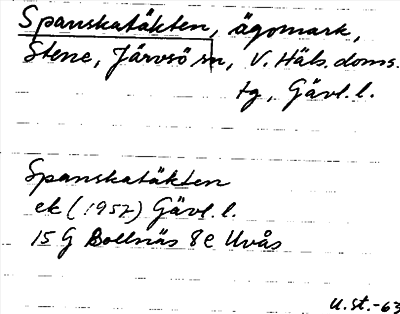 Spanskatäkten, ägomark,
Stene, Järvsö sn, V. Häls. doms.
tg, Gävl. l.
Spanskatäkten
ek (1957) Gävl. l.
15 G Bollnäs 8e Uvås
U.St.-63